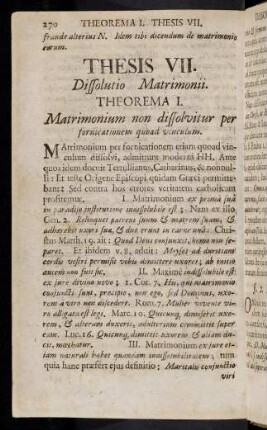 270 THEOREMA I. THESIS VII.
fraude alterius N. Idem tibi dicendum de matrimonio
eorum.
THESIS VII.
Dissolutio Matrimonii.
THEOREMA I.
Matrimonium non dissolvitur per
fornicationem quoad vinculum.
MAtrimonium per fornicationem etiam quoad vin-
culum dissolvi, admittunt moderni HH. Ante
quos idem docuit Tertullianus, Catharinus, & nonnul-
li: Et teste Origene Episcopi quidam Græci permitte-
bant: Sed contra hos errores veritatem catholicam
profitemur. I. Matrimonium ex prima sua
in paradiso institutione insolubile est; Nam ex illo
Gen. 2. Relinquet patrem suum & matrem suam, &
adhærebit uxori suæ, & duo erunt in carne una: Chri-
stus Matth. 19. ait: Quod Deus conjunxit, homo non se-
paret. Et ibidem v. 8. addit: Moyses ad duritiam
cordis vestri permisit vobis dimittere uxores; ab initio
autem non fuit sic, II. Maximè indissolubile est
ex jure divino novo; 1. Cor. 7. His, qui matrimonio
conjuncti sunt, præcipio, non ego, sed Dominus, uxo-
rem à viro non discedere. Rom. 7. Mulier vivente vi-
ro alligata est legi. Marc. 10. Quicunq; dimiserit uxo-
rem, & alteram duxerit, adulterium committit super
eam. Luc. 16. Quicunq; dimittit uxorem & aliam du-
cit, mœchatur. III. Matrimonium ex jure et-
iam naturali habet quandam indissolubilitatem; nam
quia hanc præfert ejus definitio; Maritalis conjunctio
viri